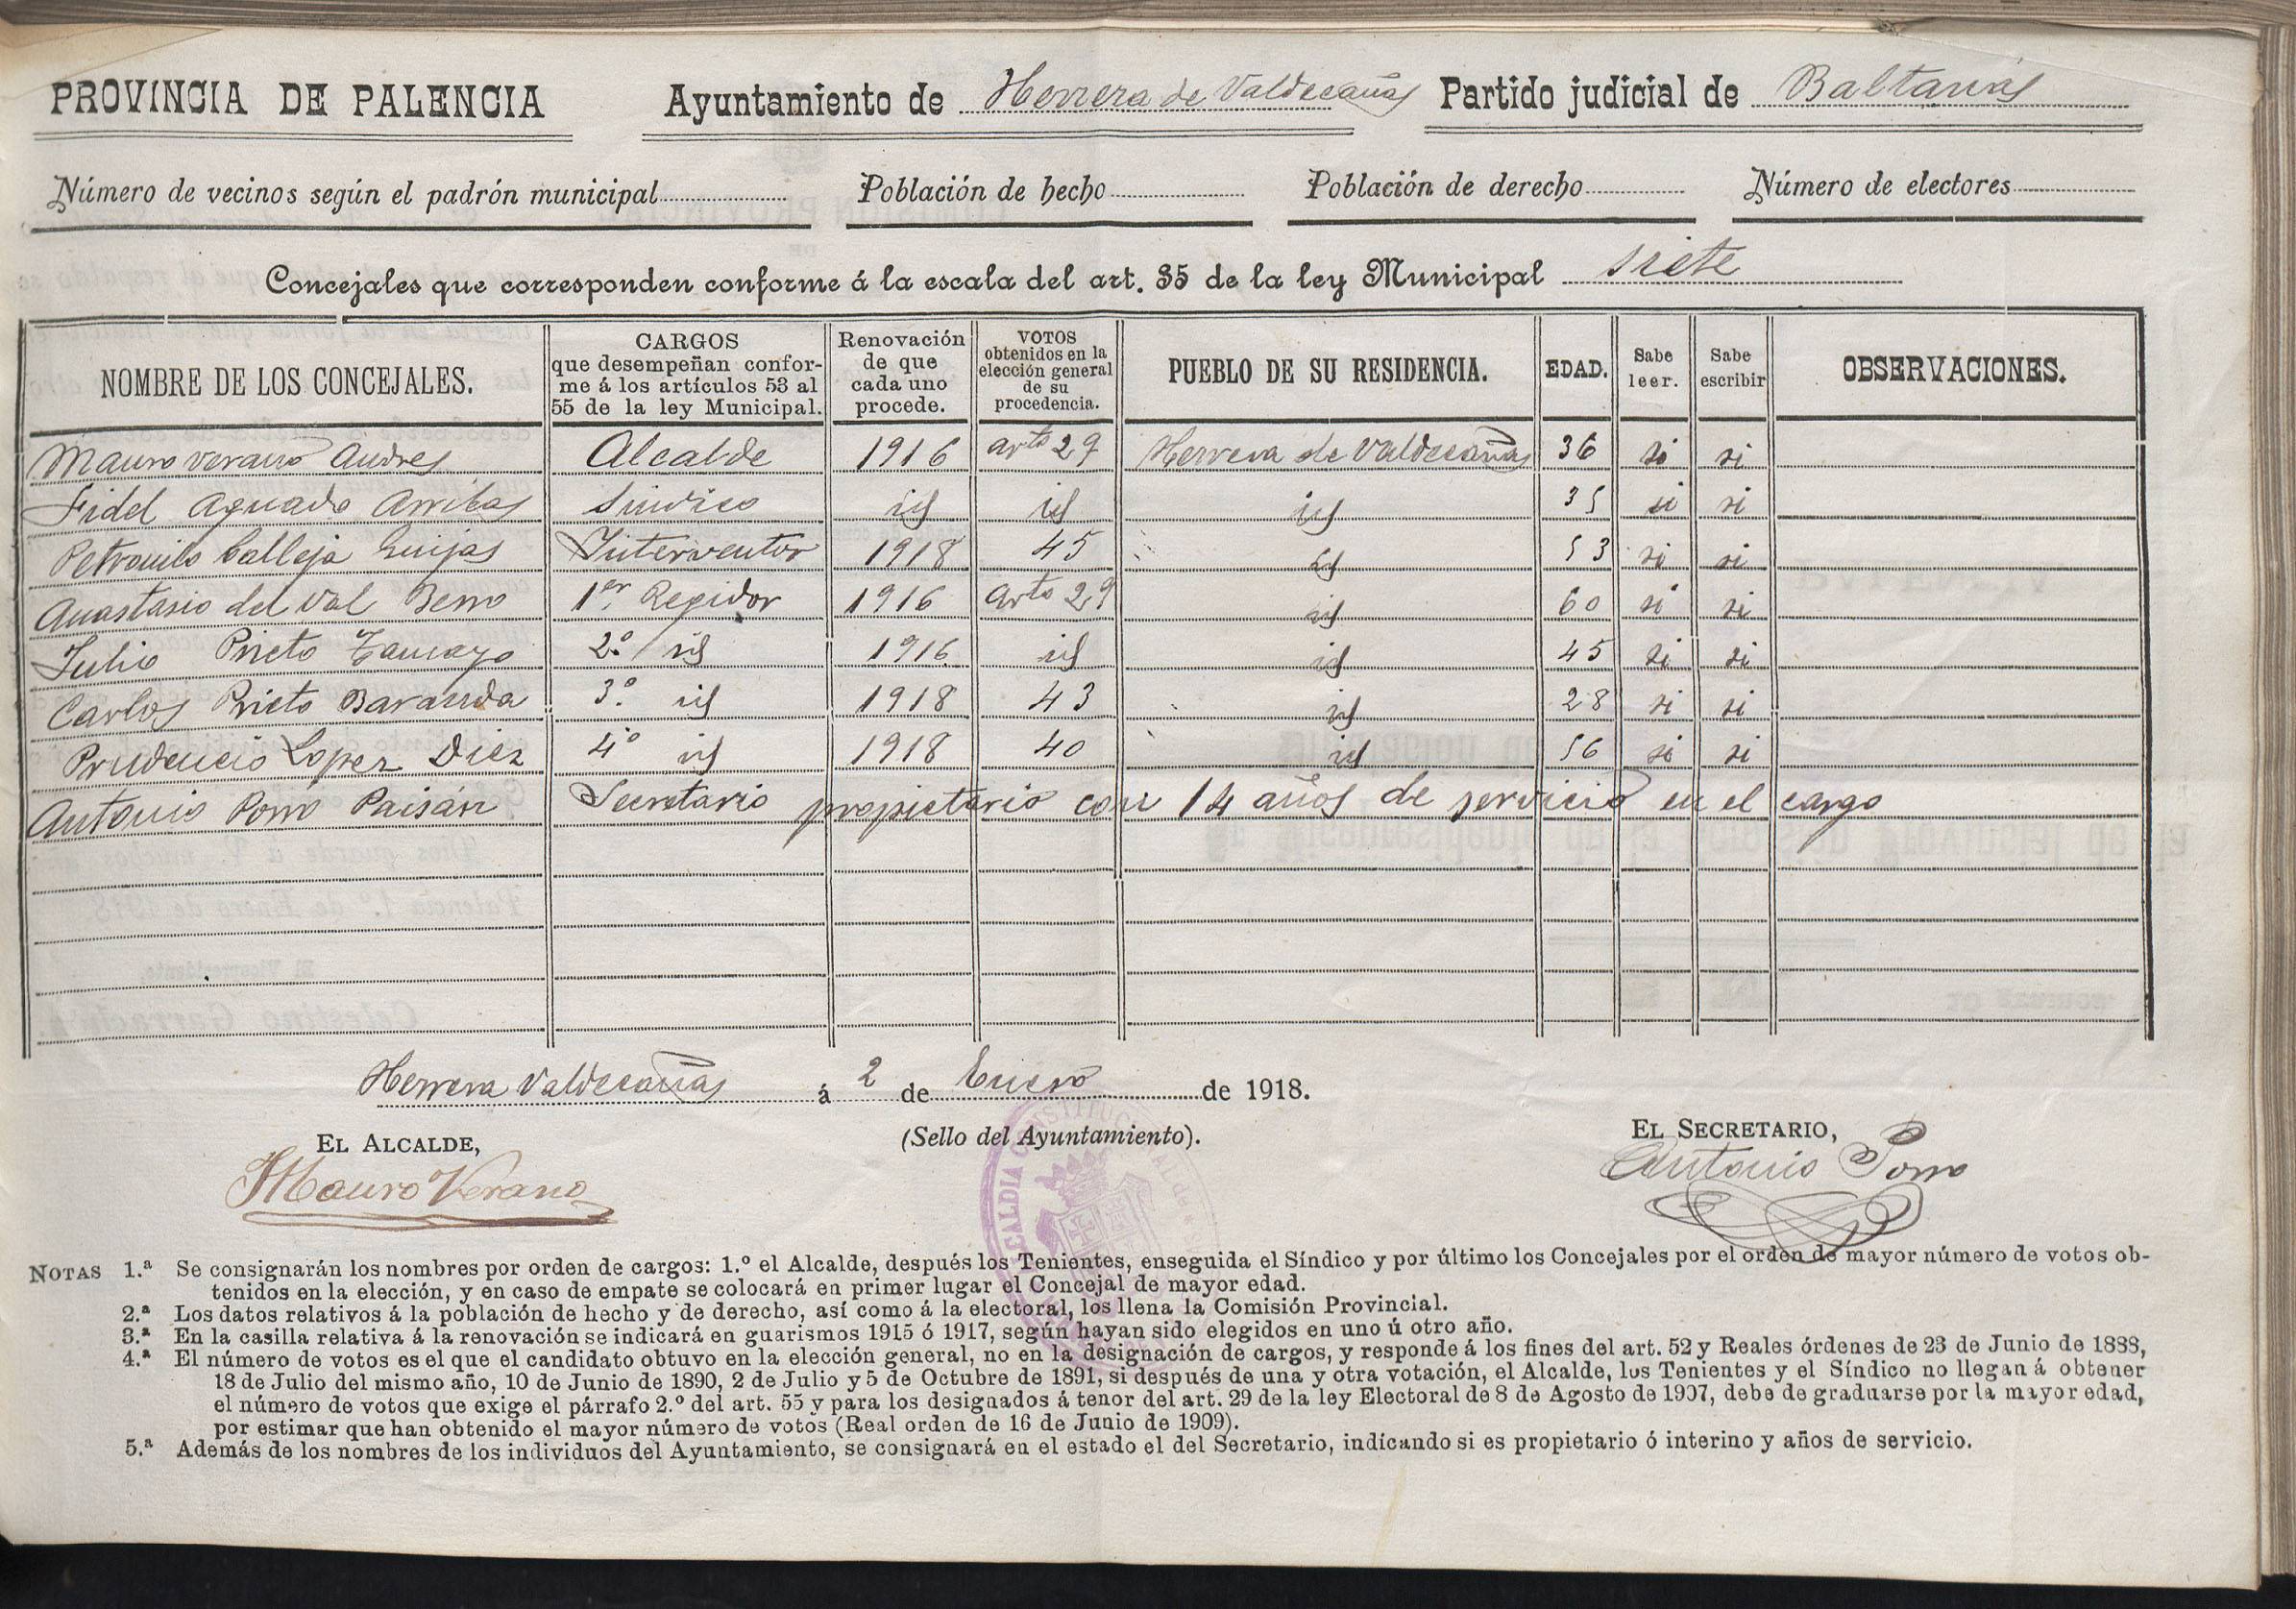 PROVINCIA DE PALENCIA Ayuntamiento de Herrera de Valdecañas Partido judicial de Baltanás
Número de vecinos según el padrón municipal Población de hecho Población de derecho Número de electores
Concejales que corresponden conforme á la escala del art. 35 de la ley Municipal siete
NOMBRE DE LOS CONCEJALES.
CARGOS
que desempeñan confor-
me á los artículos 53 al
55 de la ley Municipal.
Renovación
de que
cada uno
procede.
VOTOS
obtenidos en la
elección general
de su
procedencia.
PUEBLO DE SU RESIDENCIA.
EDAD.
Sabe
leer.
Sabe
escribir
OBSERVACIONES.
Mauro Verano Andres Alcalde 1916 artº 29 Herrera de Valdecañas 36 si si
Fidel Aguado Arribas Sindico id id id 35 si si
Petronilo Calleja Guijas Interventor 1918 45 id 53 si si
Anastasio del Val Berro 1er Regidor 1916 artº 29 id 60 si si
Julio Prieto Tamayo 2º id 1916 id id 45 si si
Carlos Prieto Baranda 3º id 1918 43 id 28 si si
Prudencio Lopez Diez 4º id 1918 40 id 56 si si
Antonio Porro Paisán Secretario propietario con 14 años de servicio en el cargo
Herrera Valdecañas á 2 de Enero de 1918.
EL ALCALDE, (Sello del Ayuntamiento). EL SECRETARIO,
Mauro Verano Antonio Porro
NOTAS 1.ª Se consignarán los nombres por orden de cargos: 1.º el Alcalde, después los Tenientes, enseguida el Síndico y por último los Concejales por el orden de mayor número de votos ob-
tenidos en la elección, y en caso de empate se colocará en primer lugar el Concejal de mayor edad.
2.ª Los datos relativos á la población de hecho y de derecho, así como á la electoral, los llena la Comisión Provincial.
3.ª En la casilla relativa á la renovación se indicará en guarismos 1915 ó 1917, según hayan sido elegidos en uno ú otro año.
4.ª El número de votos es el que el candidato obtuvo en la elección general, no en la designación de cargos, y responde á los fines del art. 52 y Reales órdenes de 23 de Junio de 1888,
18 de Julio del mismo año, 10 de Junio de 1890, 2 de Julio y 5 de Octubre de 1891, si después de una y otra votación, el Alcalde, los Tenientes y el Síndico no llegan á obtener
el número de votos que exige el párrafo 2.º del art. 55 y para los designados á tenor del art. 29 de la ley Electoral de 8 de Agosto de 1907, debe de graduarse por la mayor edad,
por estimar que han obtenido el mayor número de votos (Real orden de 16 de Junio de 1909).
5.ª Además de los nombres de los individuos del Ayuntamiento, se consignará en el estado el del Secretario, indicando si es propietario ó interino y años de servicio.